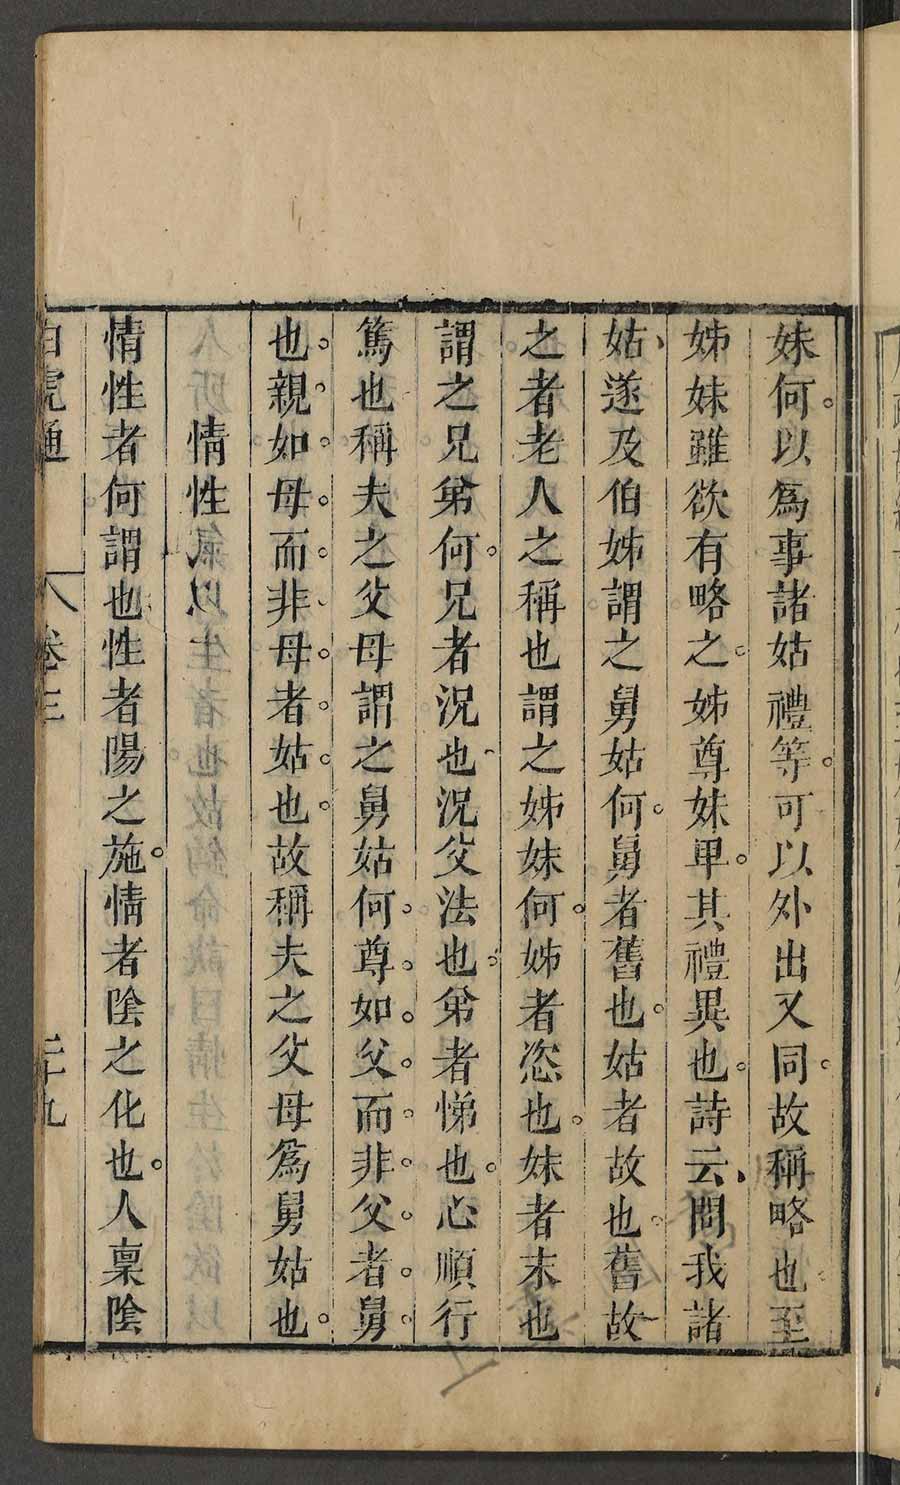 妹何以爲事諸姑禮等可以外出又同故稱略也至
姊妹雖欲有略之姊尊妹卑其禮異也詩云問我諸
姑遂及伯姊謂之舅姑何舅者舊也姑者故也舊故
之者老人之稱也謂之姊妹何姊者恣也妹者末也
謂之兄弟何兄者況也況父法也弟者悌也心順行
篤也稱夫之父母謂之舅姑何尊如父而非父者舅
也親如母而非母者姑也故稱夫之父母爲舅姑也
情性
情性者何謂也性者陽之施情者陰之化也人稟陰
白虎通 卷三 二十九